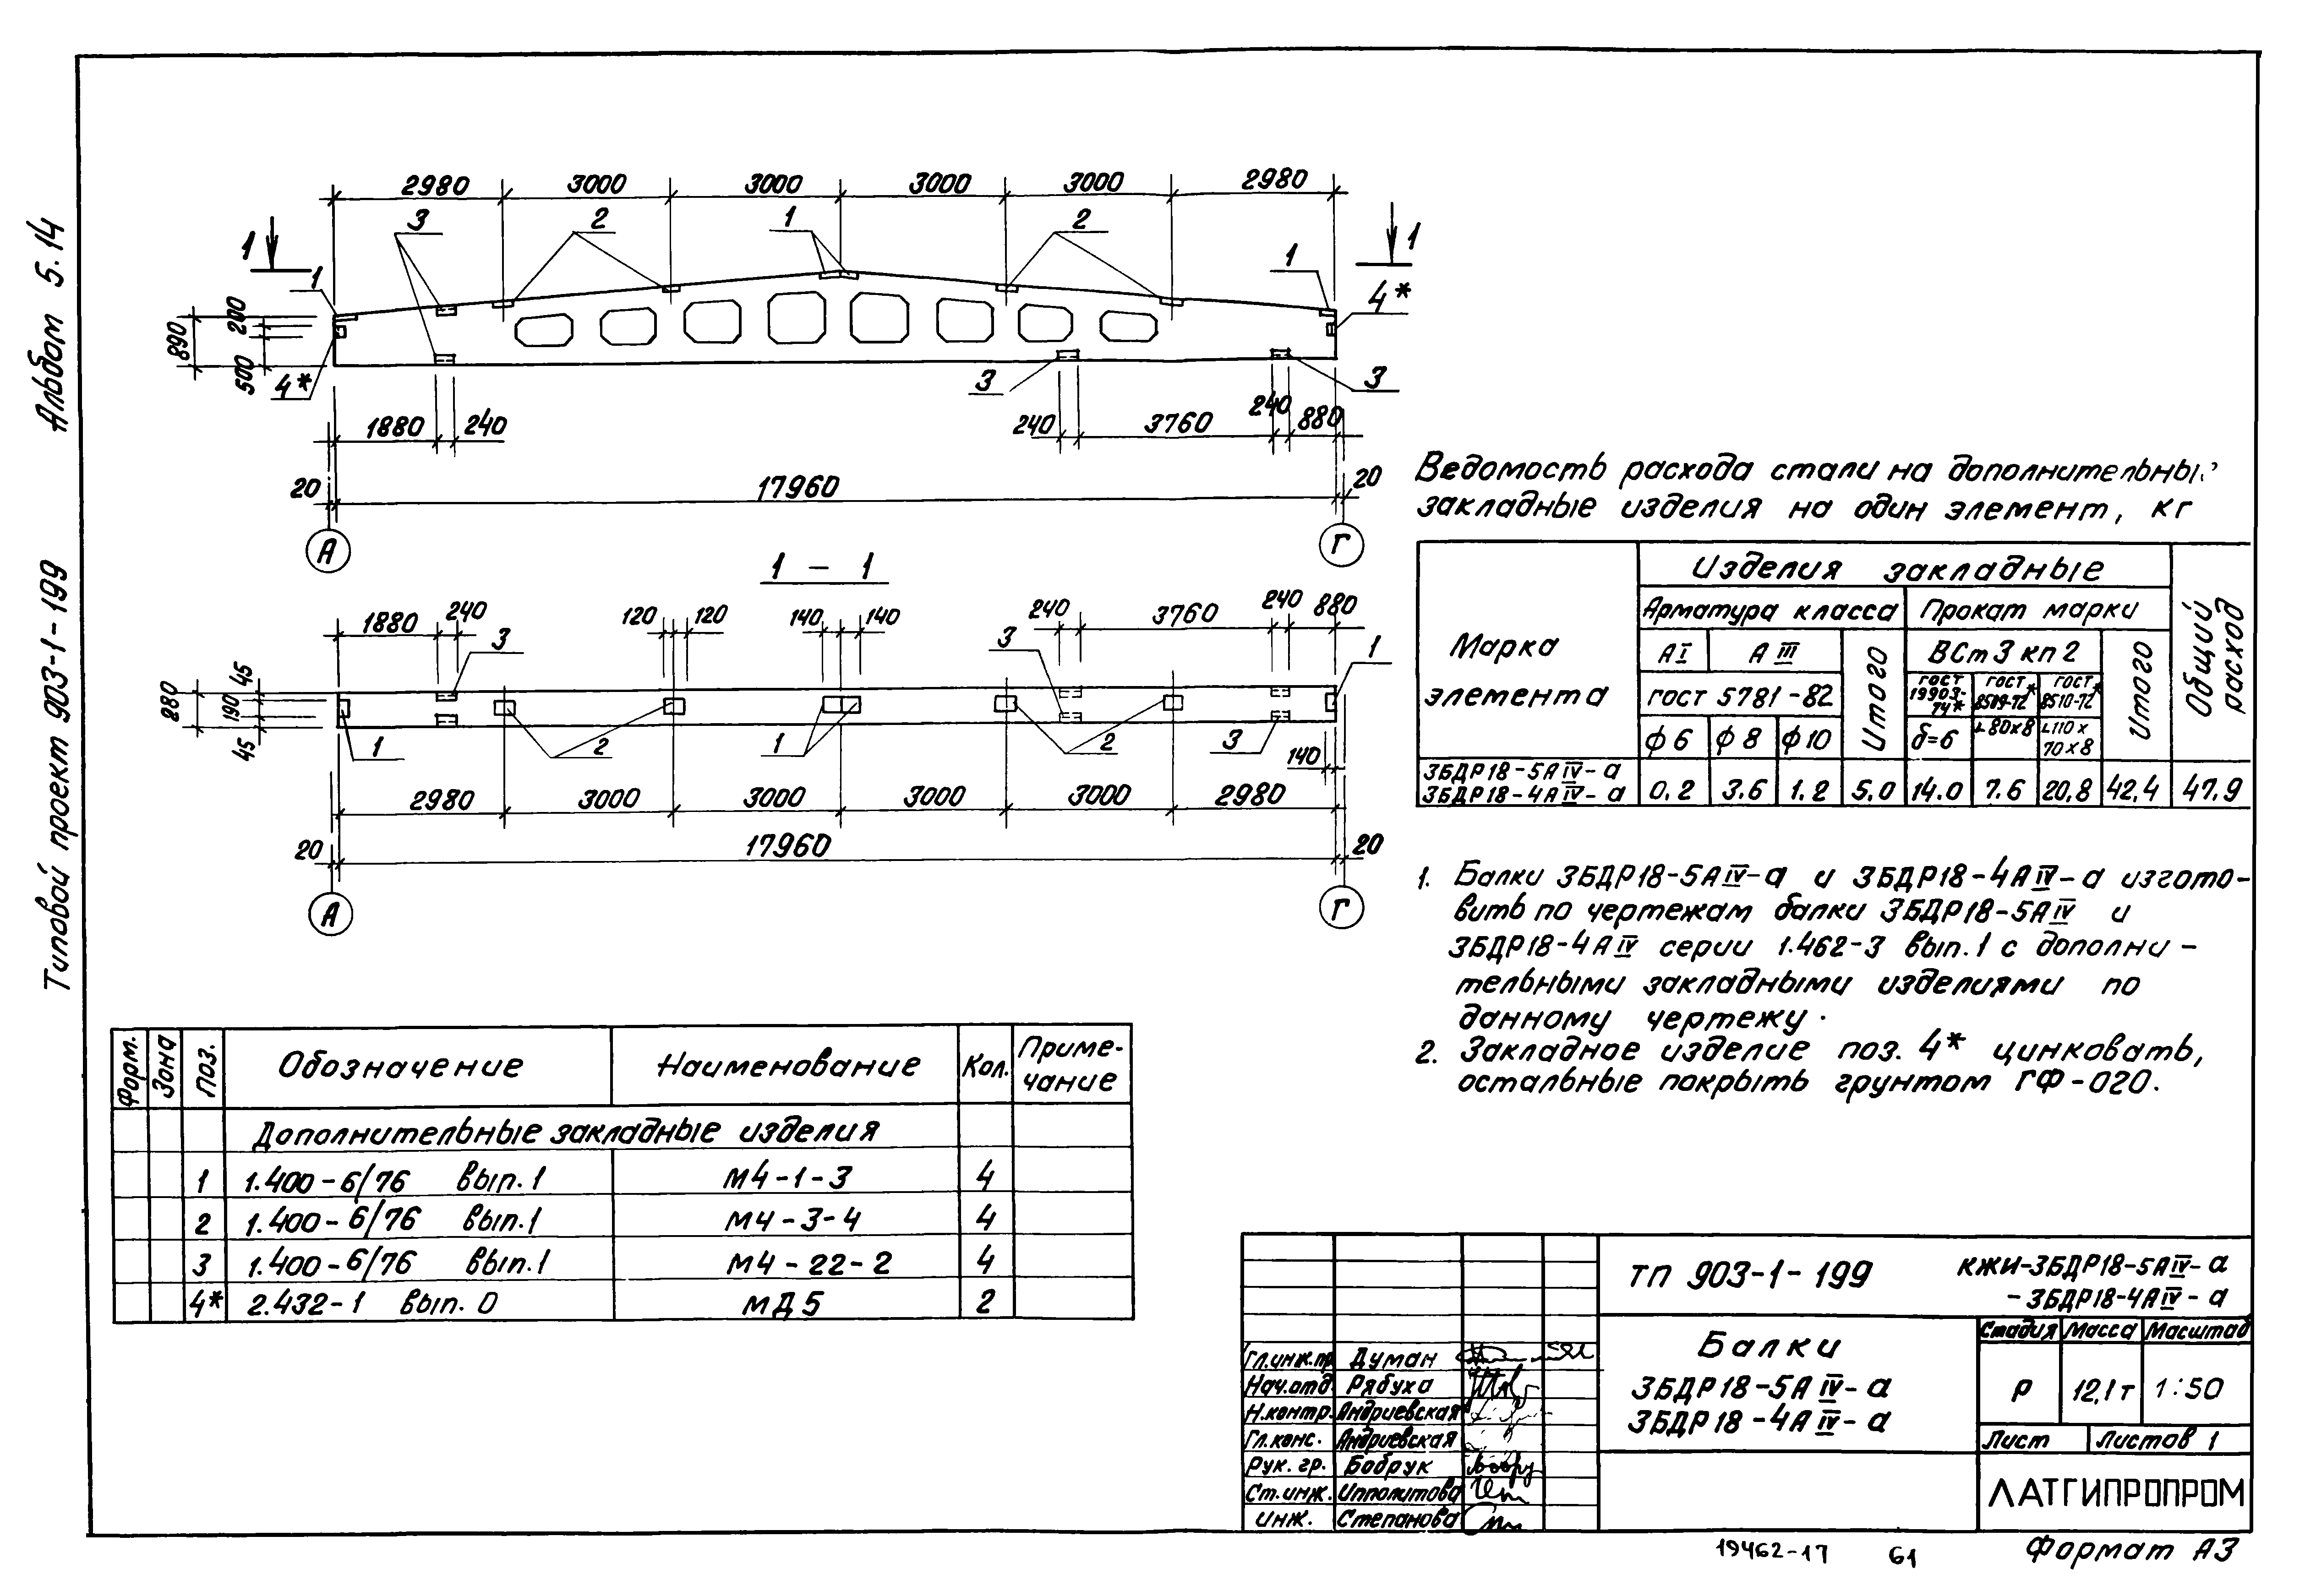 Альбом 5.14
Типовой проект 903-1-199
2980 3000 3000 3000 3000 2980
3 2 1 2
1 1
1 1
4*
890 200 500
4*
3 3
1880 240 240 3760 240 880
20 17960 20
А Г
1 - 1
1880 240 120 120 140 140 240 3760 240 880
3 3 1
280 45 190 45
1 2 1 2 3
140
2980 3000 3000 3000 3000 2980
20 17960 20
А Г
Ведомость расхода стали на дополнительны
закладные изделия на один элемент, кг
Марка элемента
Изделия закладные
Общий расход
Арматура класса Прокат марки
АI АIII Итого ВСт3 кп2 Итого
ГОСТ 5781-82 ГОСТ 19903-74* ГОСТ 8509-72* ГОСТ 8510-72*
ф6 ф8 ф10 δ=6 ∟80×8 ∟110×70×8
3БДР18-5АIV-а
3БДР18-4АIV-а
0.2 3.6 1.2 5.0 14.0 7.6 20,8 42,4 47.9
1. Балки 3БДР18-5АIV-а и 3БДР18-4АIV-а изгото-
вить по чертежам балки 3БДР18-5АIV и
3БДР18-4АIV серии 1.462-3 вып.1 с дополни-
тельными закладными изделиями по
данному чертежу.
2. Закладное изделие поз. 4* цинковать,
остальные покрыть грунтом ГФ-020.
Форм. Зона Поз. Обозначение Наименование Кол. Приме-
чание
Дополнительные закладные изделия
1 1.400-6/76 вып.1 М4-1-3 4
2 1.400-6/76 вып.1 М4-3-4 4
3 1.400-6/76 вып.1 М4-22-2 4
4* 2.432-1 вып.0 МД5 2
ТП 903-1-199 КЖИ-3БДР18-5АIV-а
-3БДР18-4АIV-а
Балки
3БДР18-5АIV-а
3БДР18-4АIV-а
Стадия Масса Масштаб
Р 12,1т 1:50
Лист Листов 1
ЛАТГИПРОПРОМ
Гл.инж.пр. Думан
Нач.отд. Рябуха
Н.контр. Андриевская
Гл.конс. Андриевская
Рук. гр. Бобрук
Ст.инж. Ипполитова
инж. Степанова
19462-17 61
Формат А3